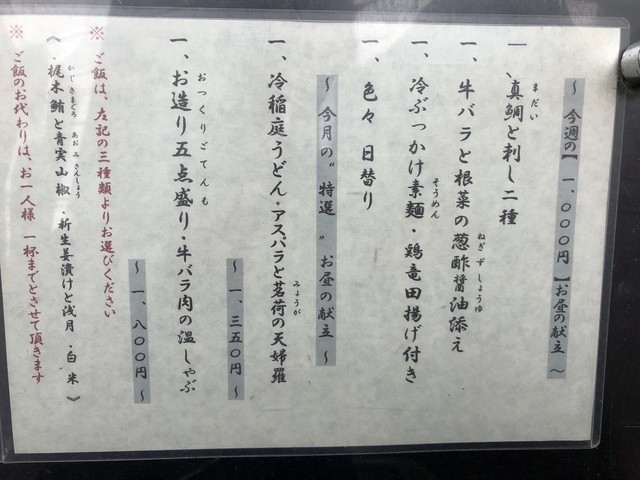 ～ 今週の【 一、〇〇〇円 】お昼の献立 ～
一、真鯛と刺し二種
まだい
一、牛バラと根菜の葱酢醤油添え
ねぎずしょうゆ
一、冷ぶっかけ素麺・鶏竜田揚げ付き
そうめん
一、色々 日替り
～ 今月の〝特選〟お昼の献立 ～
一、冷稲庭うどん・アスパラと茗荷の天婦羅
みょうが
～ 一、三五〇円 ～
一、お造り五点盛り・牛バラ肉の温しゃぶ
おつくりごてんも
～ 一、八〇〇円 ～
※ ご飯は、左記の三種類よりお選びください
《 ・梶木鮪と青実山椒 ・新生姜漬けと浅月 ・白米 》
かじきまぐろ あおみさんしょう
※ ご飯のお代わりは、お一人様 一杯までとさせて頂きます